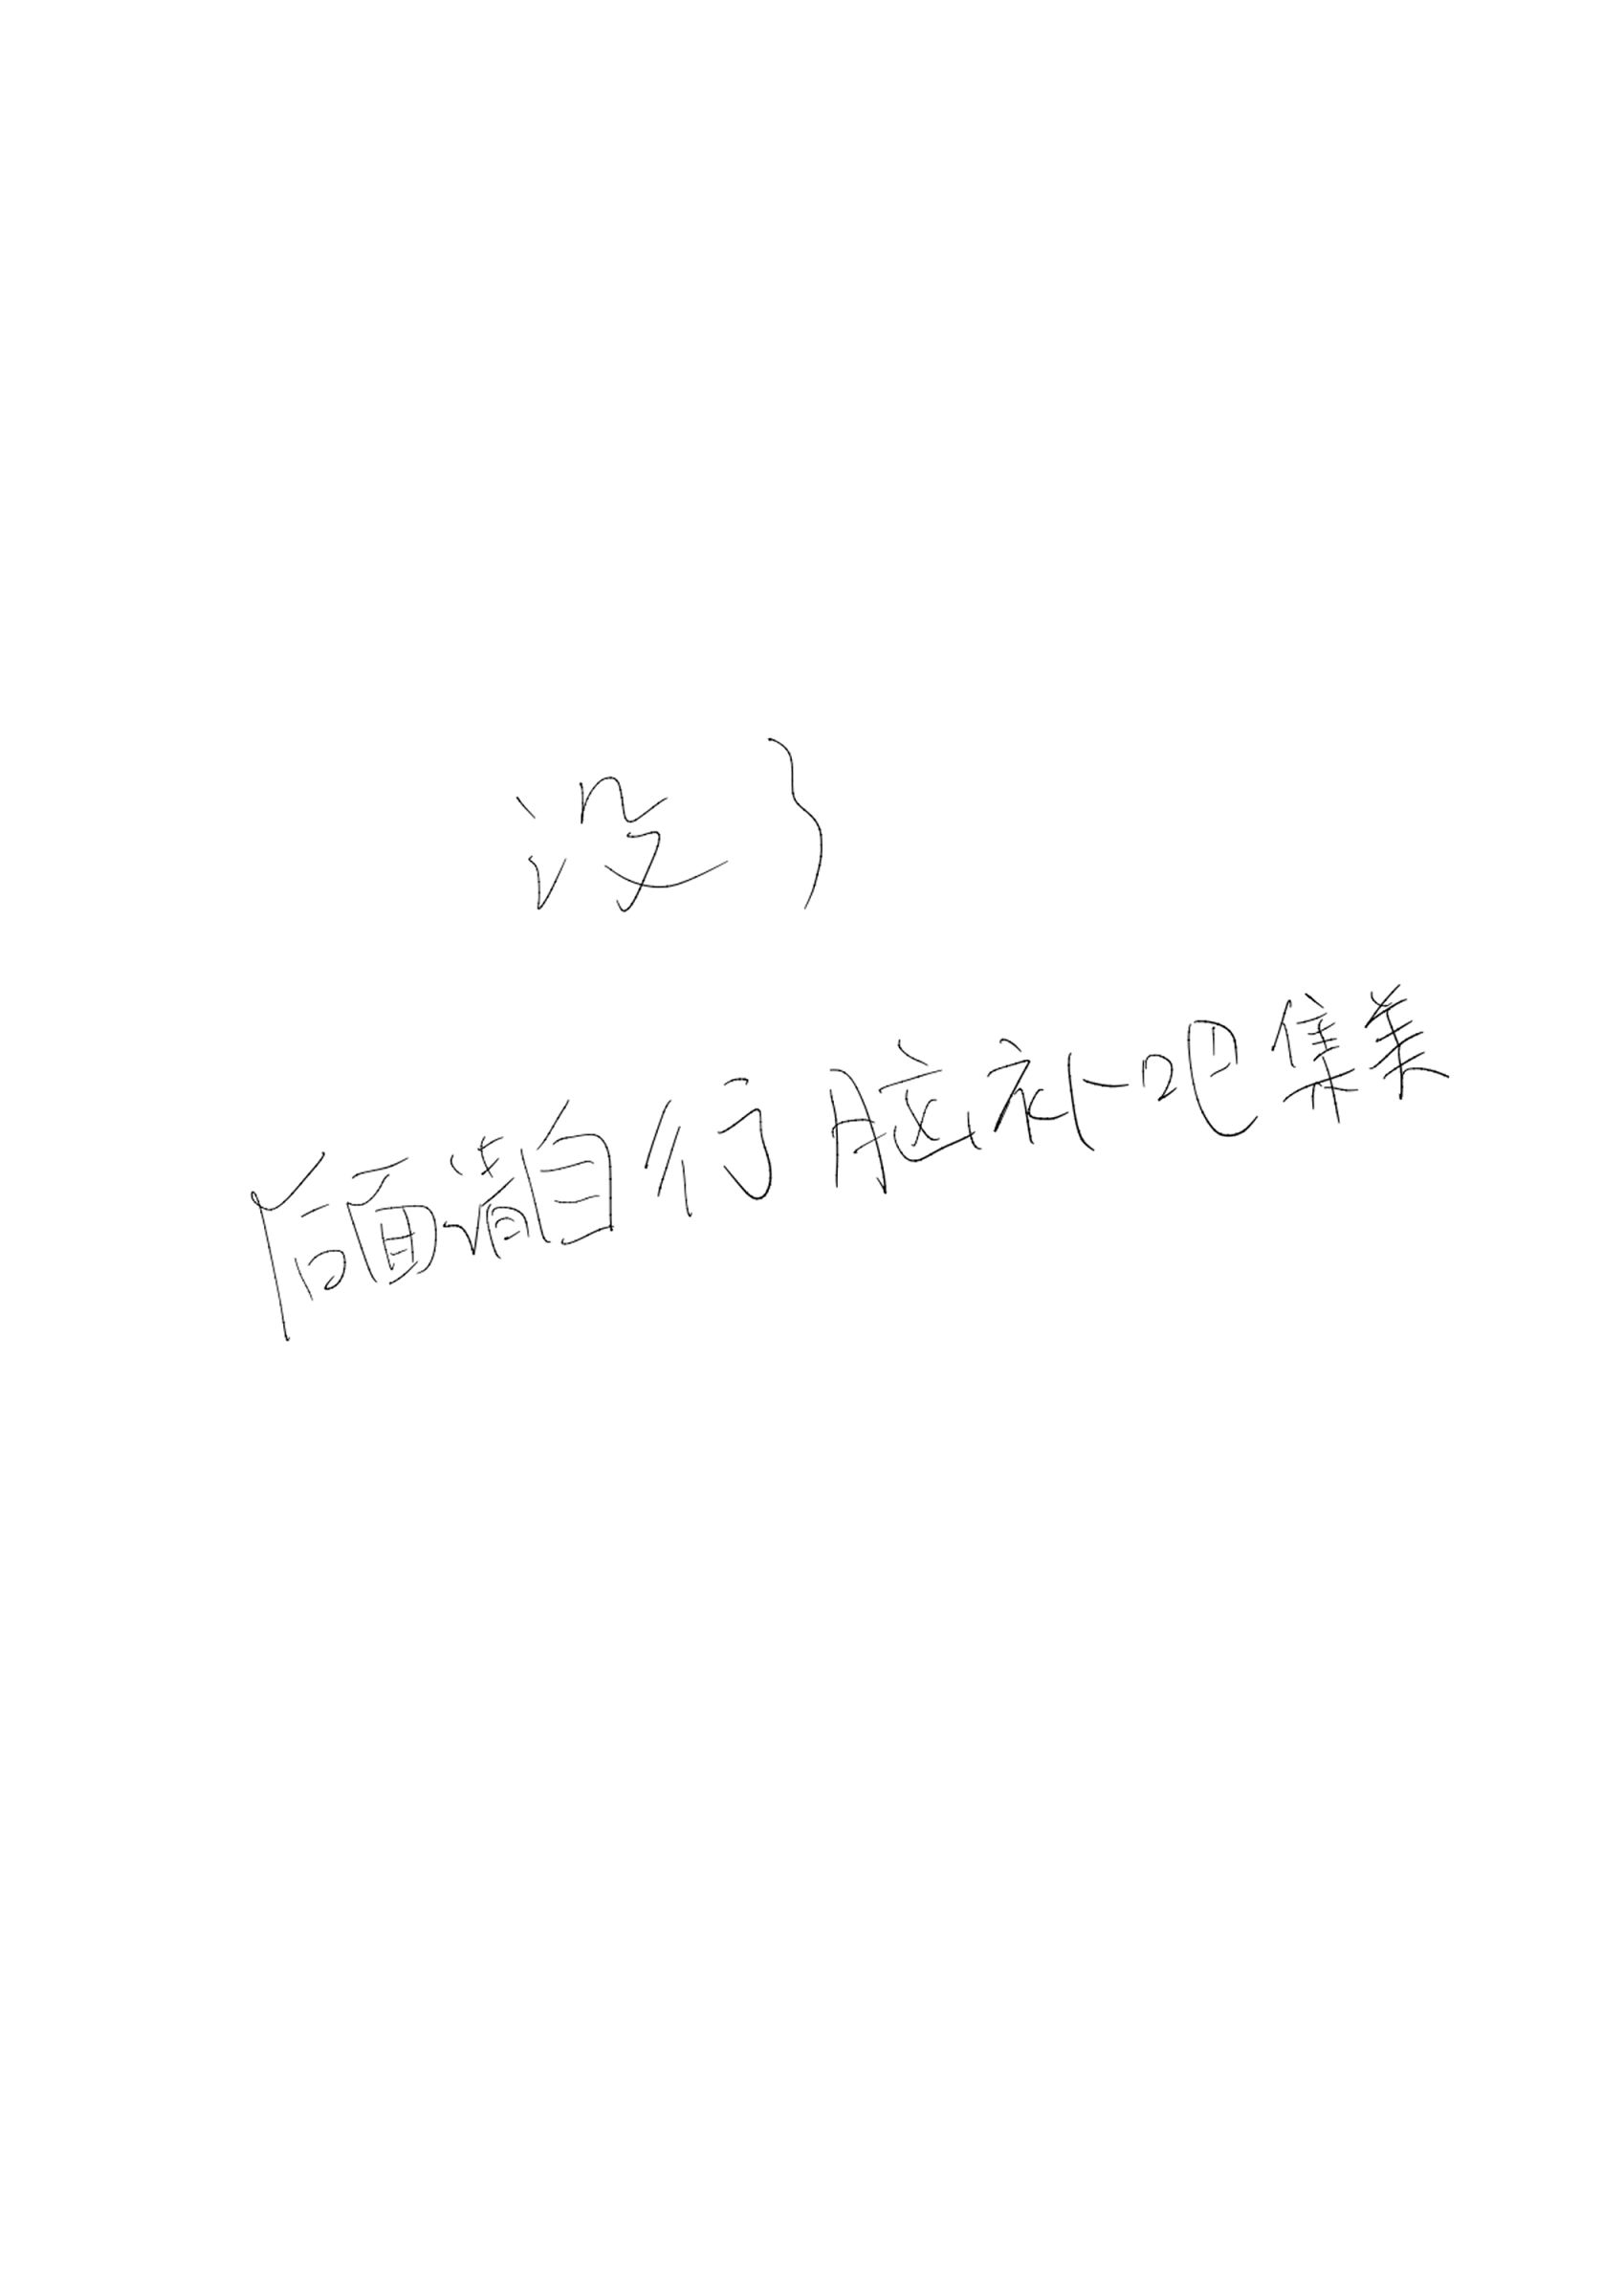 没了
后面请自行脑补吧集美